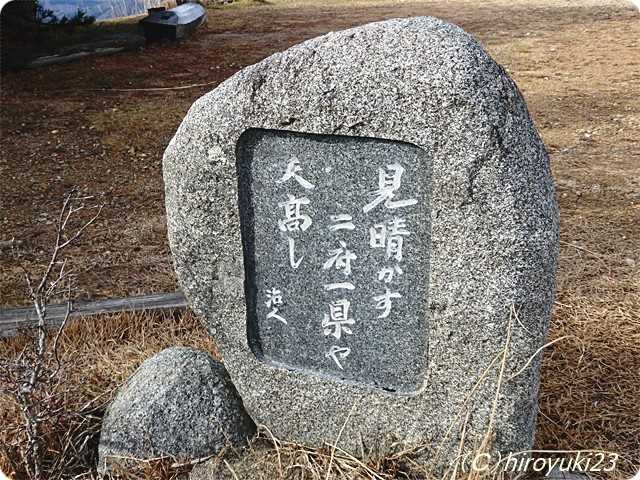 見晴かす
二府一県や
天髙し
治人
(C)hiroyuki23